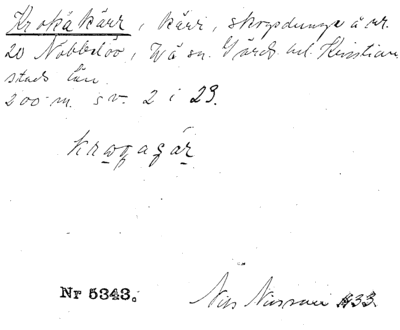 Krokäkärr, kärr, skogsdunge å nr.
20 Nobbelöv, Vå sn. Gärds hd. Kristian
stads län.
200 m. sv. 2 i 23.
krwqagär
Nr 5343.
Nils 1933.